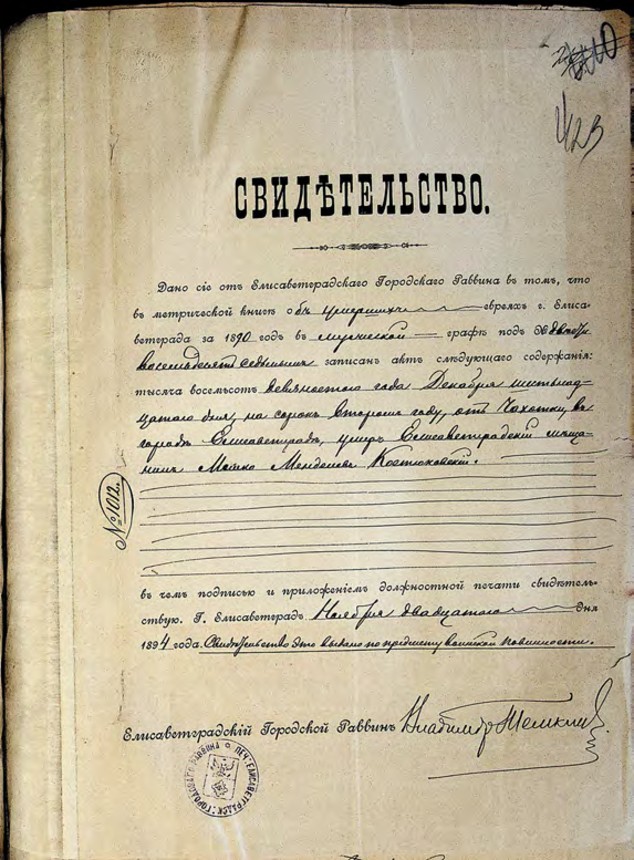 423
СВИДѢТЕЛЬСТВО.
Дано сіе отъ Елисаветградскаго Городскаго Раввина въ томъ, что
въ метрической книгѣ объ умершихъ евреяхъ г. Елиса-
ветграда за 1890 годъ въ мужеской графѣ подъ №
восемьдесятъ седьмымъ записанъ актъ слѣдующаго содержанія:
тысяча восемьсотъ девяностаго года Декабря
цатаго дня, на сорокъ второмъ году, отъ Чахотки, въ
городѣ Елисаветградѣ, умеръ Елисаветградскій мѣща-
нинъ Мошко Менделевъ Костюковскій.
№ 1012.
въ чемъ подписью и приложеніемъ должностной печати свидѣтель-
ствую. Г. Елисаветградъ Ноября двадцатаго дня
1894 года. Свидѣтельство это выдано по предмету воинской повинности.
Елисаветградскій Городской Раввинъ Владиміръ
ПЕЧ. ЕЛИСАВЕТГРАДСК. ГОРОДСКАГО РАВВИНА